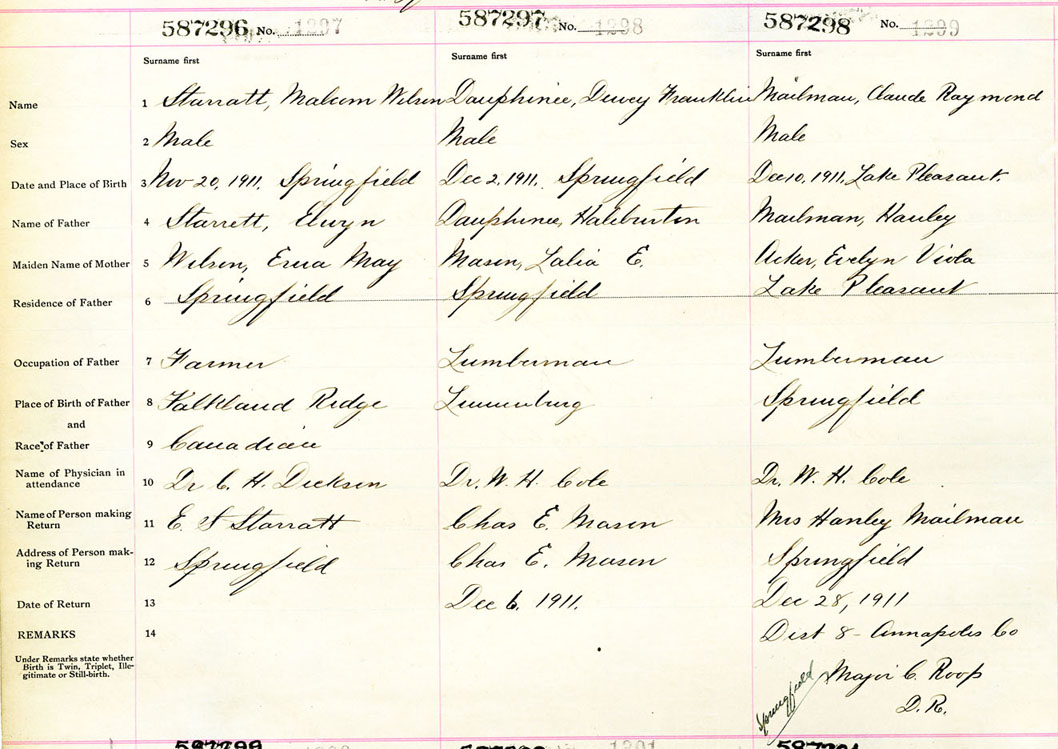 587296 No. 1297 587297 No. 1298 587298 No. 1299
Surname first Surname first Surname first
Name 1 Starratt, Malcom Wilson Dauphinee, Dewey Franklin Mailman, Claude Raymond
Sex 2 Male Male Male
Date and Place of Birth 3 Nov 20, 1911, Springfield Dec 2, 1911, Springfield Dec 10, 1911, Lake Pleasant.
Name of Father 4 Starrett, Elwyn Dauphinee, Haliburton Mailman, Hanley
Maiden Name of Mother 5 Wilson, Erna May Mason, Lalia E. Acker, Evelyn Viola
Residence of Father 6 Springfield Springfield Lake Pleasant
Occupation of Father 7 Farmer Lumberman Lumberman
Place of Birth of Father 8 Falkland Ridge Lunenburg Springfield
and
Race of Father 9 Canadian
Name of Physician in
attendance 10 Dr C. H. Dickson Dr. W. H. Cole Dr. W. H. Cole
Name of Person making
Return 11 E. F Starratt Chas E. Mason Mrs Hanley Mailman
Address of Person mak-
ing Return 12 Springfield Chas E. Mason Springfield
Date of Return 13 Dec 6, 1911. Dec 28, 1911
REMARKS 14 Dist 8 - Annapolis Co
Under Remarks state whether
Birth is Twin, Triplet, Ille-
gitimate or Still-birth.
Springfield Major C. Roop
D.R.
1301